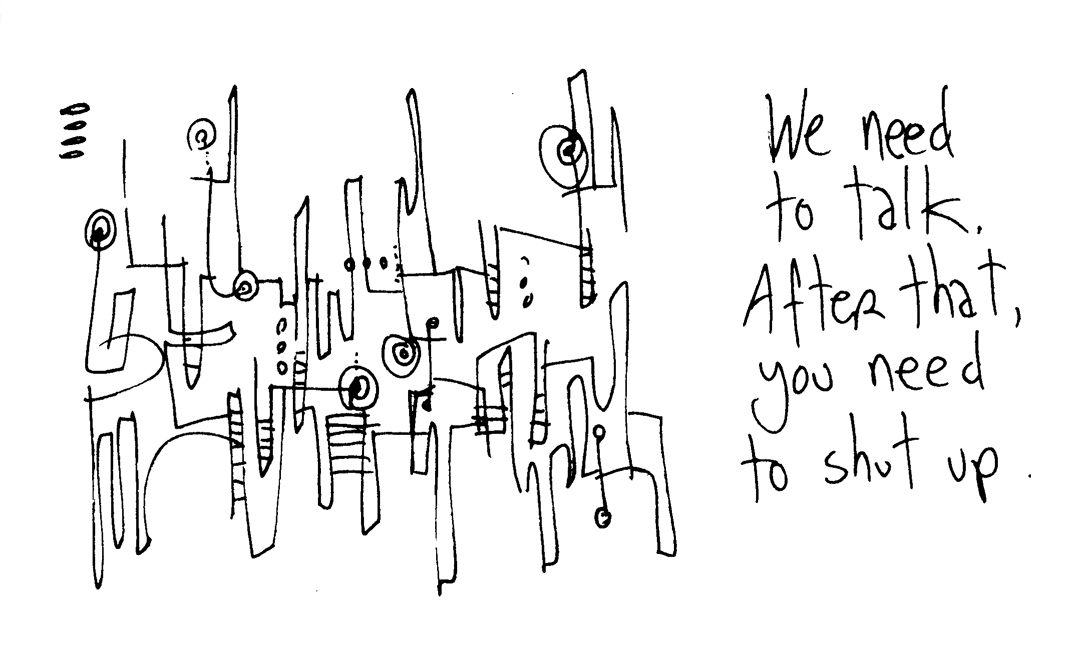 We need
to talk.
After that,
you need
to shut up.